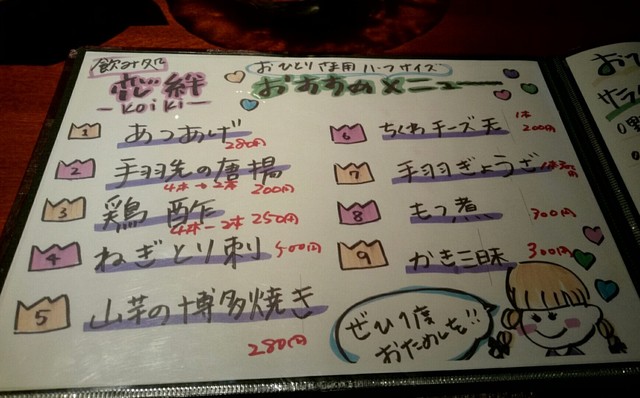 飲み処
恋絆
-KOIKI-
おひとり様用ハーフサイズ
おすすめメニュー
1 あつあげ 280円
2 手羽先の唐揚
4本→2本 200円
3 鶏酢
4本→2本 250円
4 ねぎとり刺 500円
5 山芋の博多焼き
280円
6 ちくわチーズ天 1本 200円
7 手羽ぎょうざ
8 もつ煮 300円
9 かき三昧 300円
ぜひ1度
おためしを!!